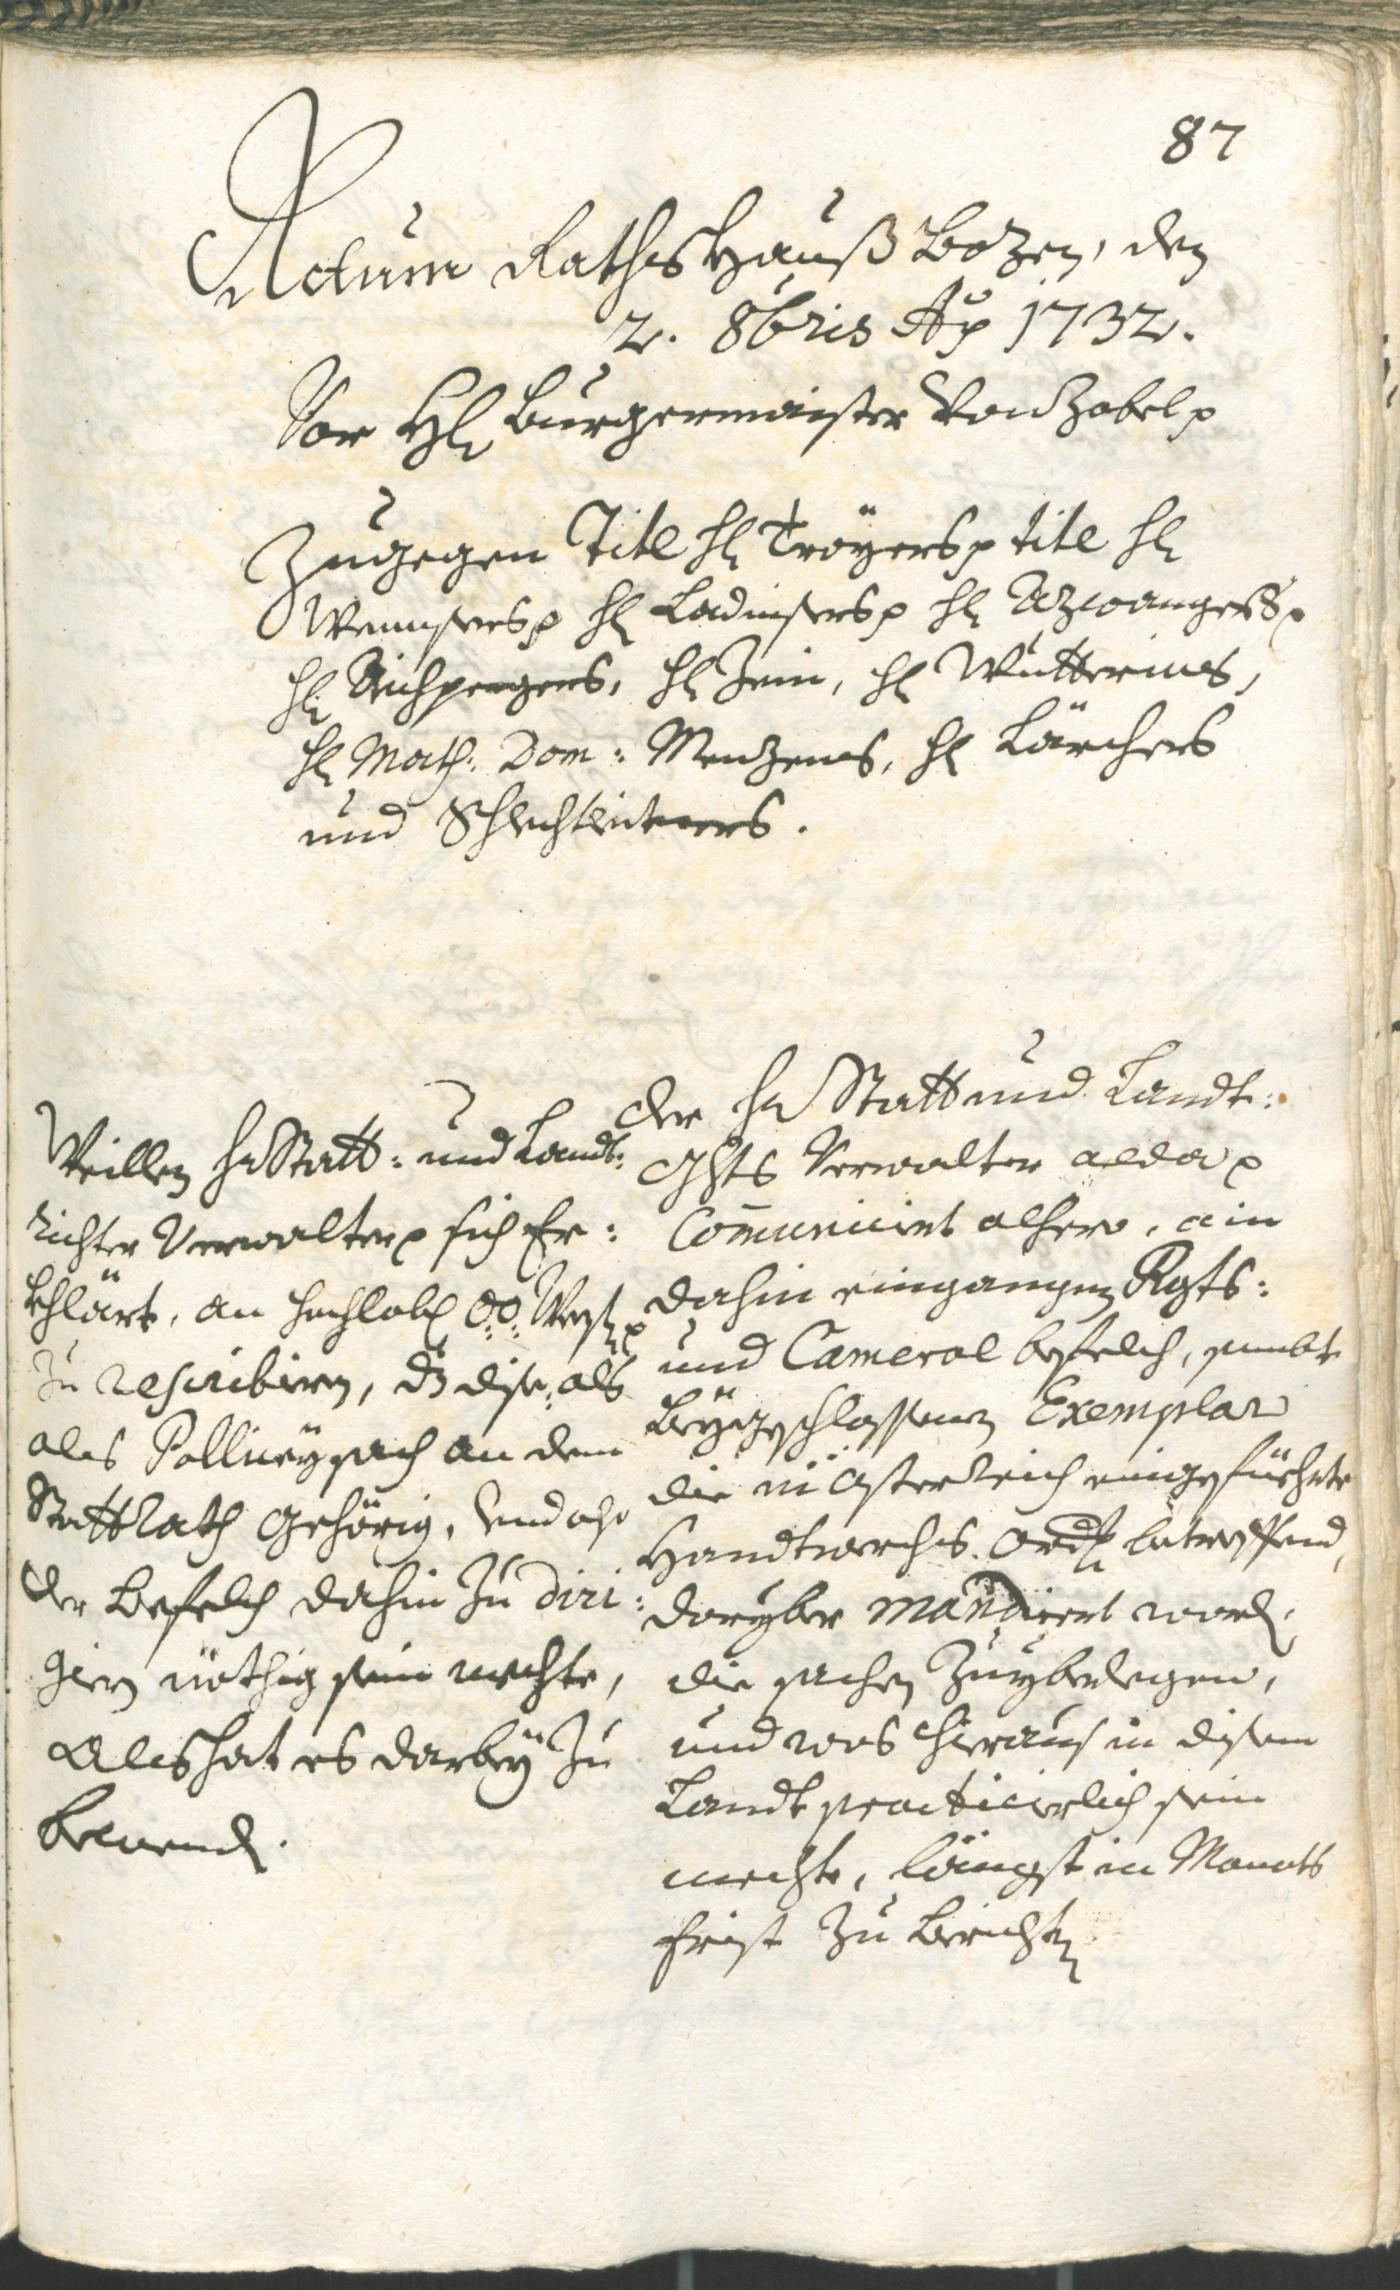 87
Actum Rathshauß Bozen, den
2. 8bris Ao 1732.
Vor Hl Burgermaister Von Zobel p
Zugegen Titl hl Tröyers p titl hl
Wennsers p hl Ladinsers p hl Azwangers p
hl Aichpergers, hl Zein, hl Wutterins,
hl Math: Dom: Menzens, hl Lärchers
und Schlechtleitners.
Weillen hr Statt: und Landt:
richter Verwalter p sich Er:
khlärt, an hochlob OÖ: Weesen p
zu rescribiern, dz dise als
ales Pollicey sach an dem
Stattrath gehörig, und also
der Befelch dahin zu diri:
giern nöthig sein mechte,
Als hat es darbey zu
bewend.
Der hr Statt und Landt:
Ghts Verwalter alda p
Comuniciert alhero, ein
dahin eingangnen Rgts:
und Cameral befelch, sambt
beygeschlossenen Exemplar
die in Össterreich eingefüehrte
Handtwerchs. Ordg betreffend,
daryber mandiert word,
die sachen zu yberlegen,
und was hieraus in disem
Landt practicierlich sein
mechte, lengst in Monats
frist zu berichten